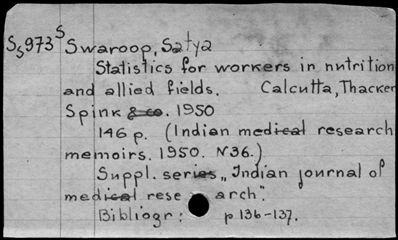 Ss973 S Swaroop, Satya
Statistics for workers in nutrition
and allied fields. Calcutta, Thacker
Spink & co. 1950
146 p. (Indian medical research
memoirs. 1950. N36.)
Suppl. series „Indian journal of
medical research".
Bibliogr: p 136-137.